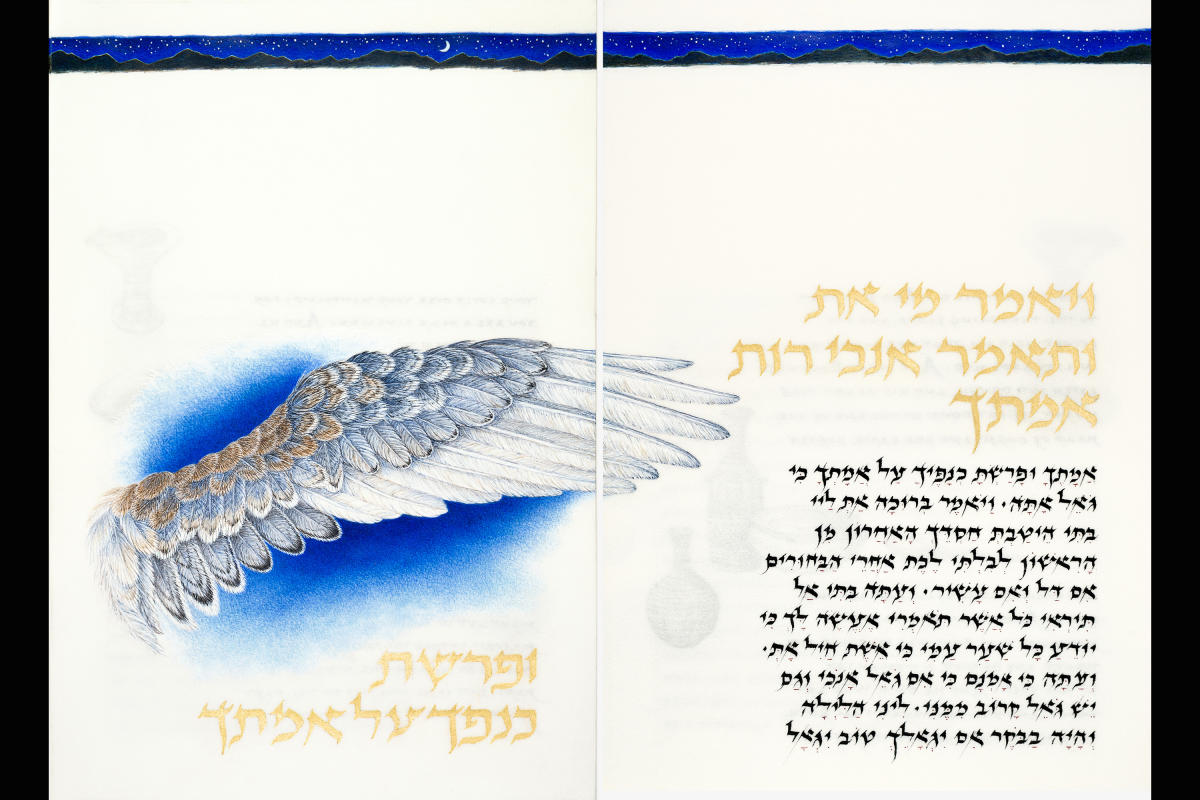 ויאמר מי את
ותאמר אנכי רות
אמתך
אֲמָתֶךָ וּפָרַשְׂתָּ כְנָפֶיךָ עַל אֲמָתְךָ כִּי
גֹאֵל אָתָּה · וַיֹּאמֶר בְּרוּכָה אַתְּ לַייָ
בִּתִּי הֵיטַבְתְּ חַסְדֵּךְ הָאַחֲרוֹן מִן
הָרִאשׁוֹן לְבִלְתִּי לֶכֶת אַחֲרֵי הַבַּחוּרִים
אִם דַּל וְאִם עָשִׁיר · וְעַתָּה בִּתִּי אַל
תִּירְאִי כֹּל אֲשֶׁר תֹּאמְרִי אֶעֱשֶׂה לָּךְ כִּי
יוֹדֵעַ כָּל שַׁעַר עַמִּי כִּי אֵשֶׁת חַיִל אָתְּ ·
וְעַתָּה כִּי אָמְנָם כִּי אִם גֹאֵל אָנֹכִי וְגַם
יֵשׁ גֹּאֵל קָרוֹב מִמֶּנִּי · לִינִי הַלַּיְלָה
וְהָיָה בַבֹּקֶר אִם יִגְאָלֵךְ טוֹב יִגְאָל
ופרשת
כנפך על אמתך